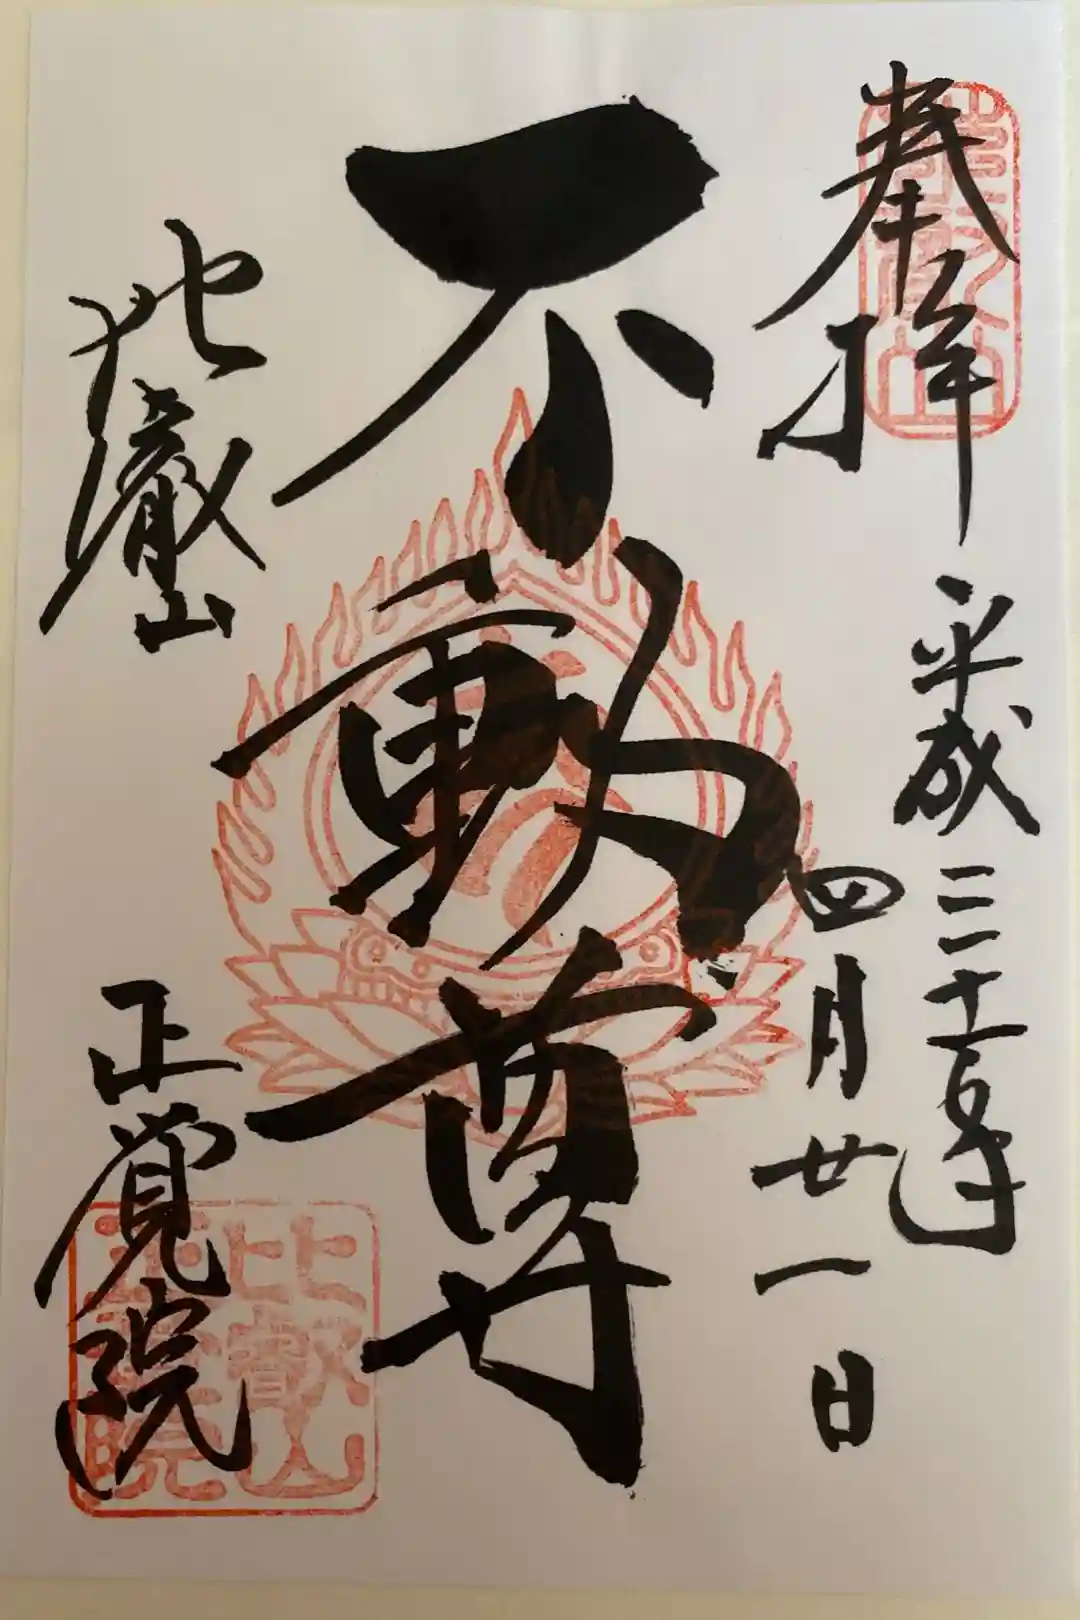 奉拝
平成三十一年
四月廿一日
不動尊
比叡山
正覚院
比叡山